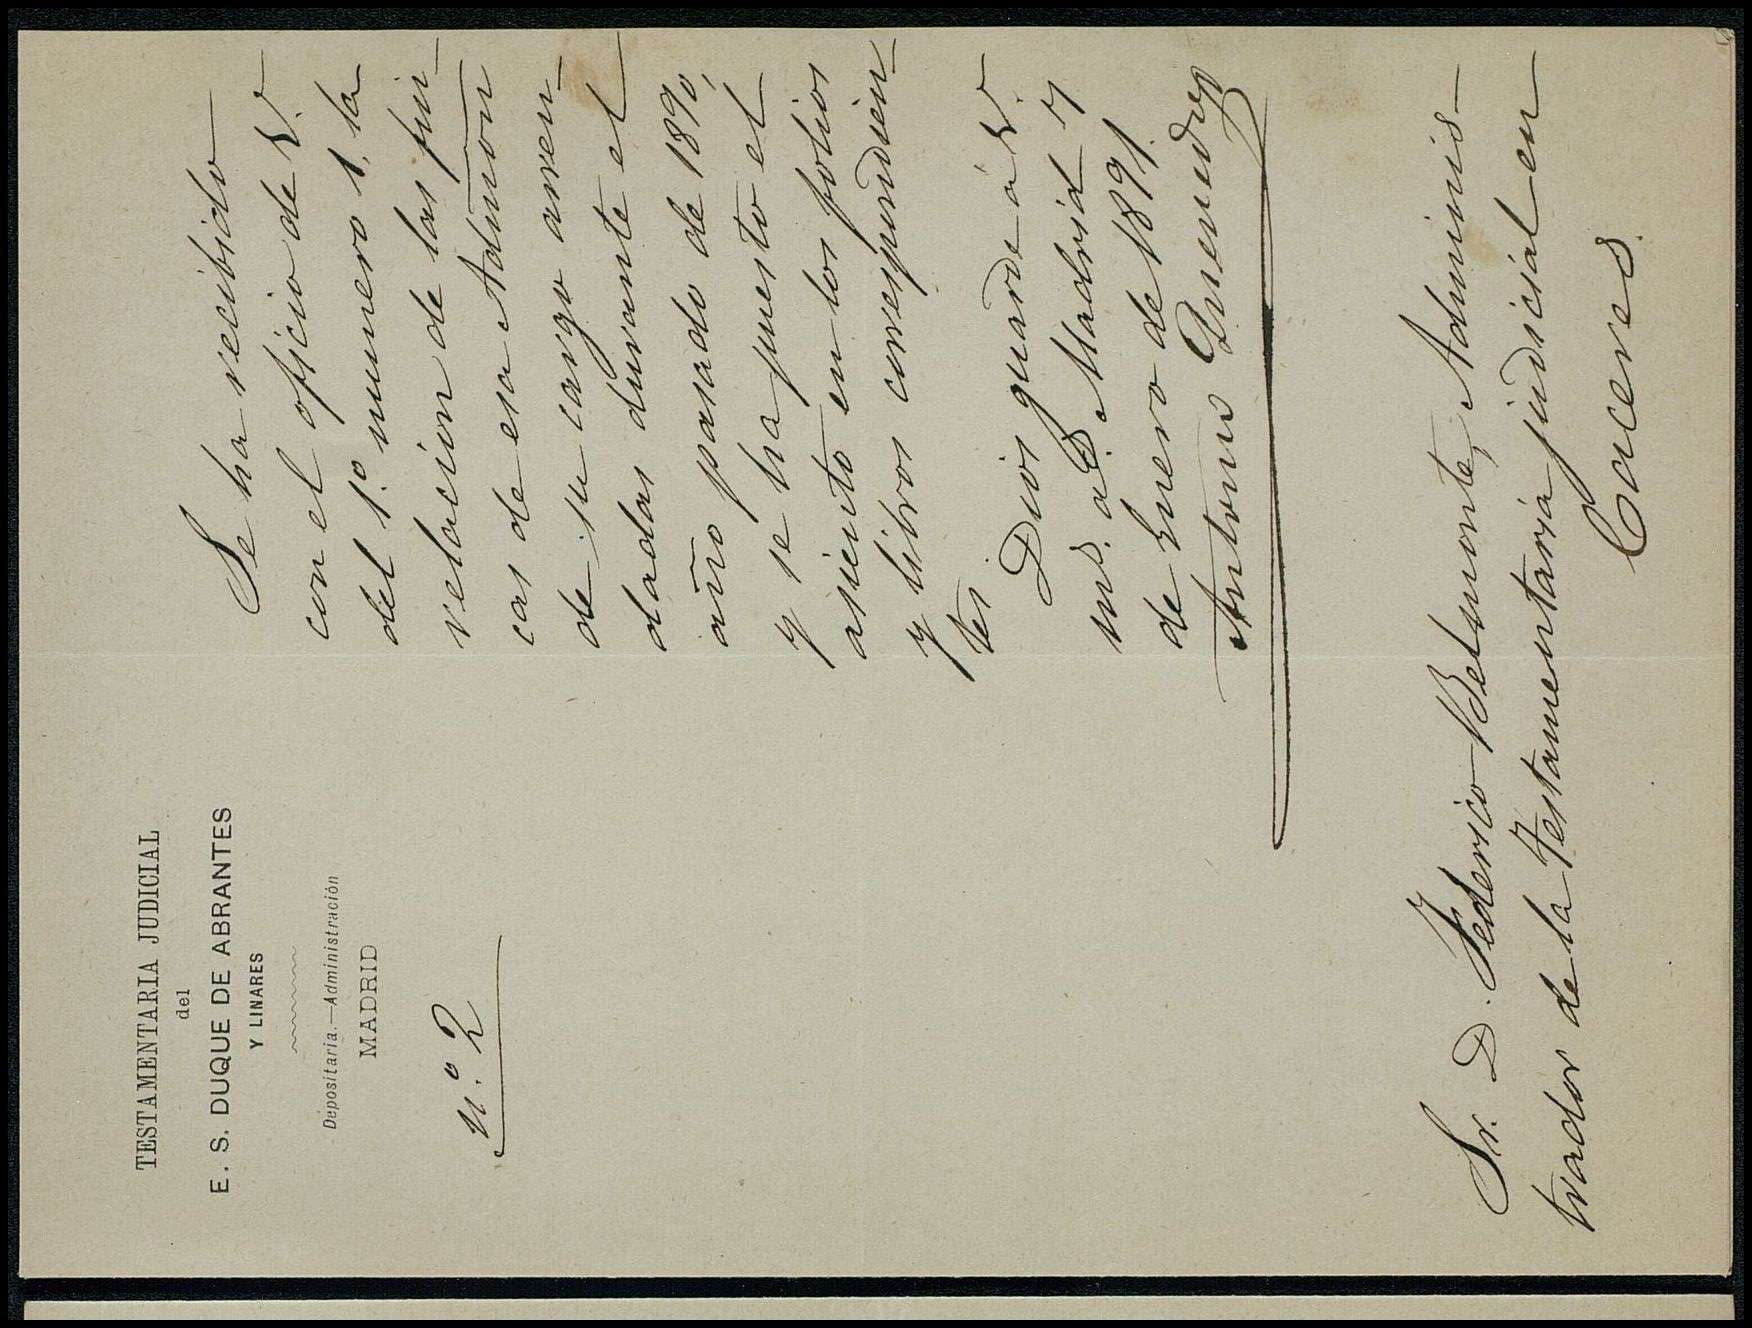 TESTAMENTARIA JUDICIAL
del
E. S. DUQUE DE ABRANTES
Y LINARES
Depositaria.—Administración
MADRID
n.º 2
Se ha recibido
con el oficio de V.
del 1.º numero 1, la
relacion de las fin-
cas de esa Admon
de su cargo arren-
dadas durante el
año pasado de 1890,
y se ha puesto el
asiento en los folios
y libros correspondien-
tes
Dios guarde á V.
m.s a.s Madrid 7
de Enero de 1891.
Antonio
Sr. D. Federico Belmonte, Adminis-
trador de la Testamentaría judicial en
Caceres.